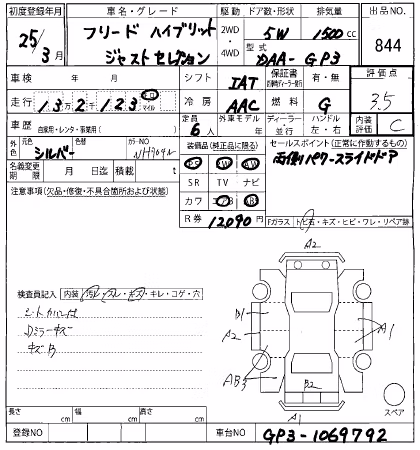 初度登録年月 車名・グレード 駆動 ドア数・形状 排気量 出品NO
25年 3月 フリード ハイブリット 2WD ・ 4WD 5W 1500cc 844
ジャストセレクション 型式 DAA-GP3
車検 年 月 シフト IAT 保証書 有・無 評価点
走行 13万2千123 キロ マイル 冷房 AAC 燃料 G 3.5
車歴 自家用・レンタ・事業用( ) 定員 6人 外車モデル 年 ディーラー・並行 ハンドル 左・右 内装評価 C
外色 元色 シルバー 色替 カラーNO NH704M 装備品(純正品に限る) セールスポイント(正常に作動するもの)
名義変更期限 月 日迄 積載 t PS PW AW 両側パワースライドドア
SR TV ナビ
注意事項(欠品・修復・不具合箇所および状態) カワ エアB AB
R券 12090円 Fガラス トビ石・キズ・ヒビ・ワレ・リペア跡
A2
検査員記入 内装 汚レ・スレ・キズ・キレ・コゲ・穴
シートカバー付
Dミラーキズ
キズ有
D1
A2
A1
AB3
A2
B2
A1
スペア
長さ cm 幅 cm 高さ cm
登録NO 車台NO GP3-1069792